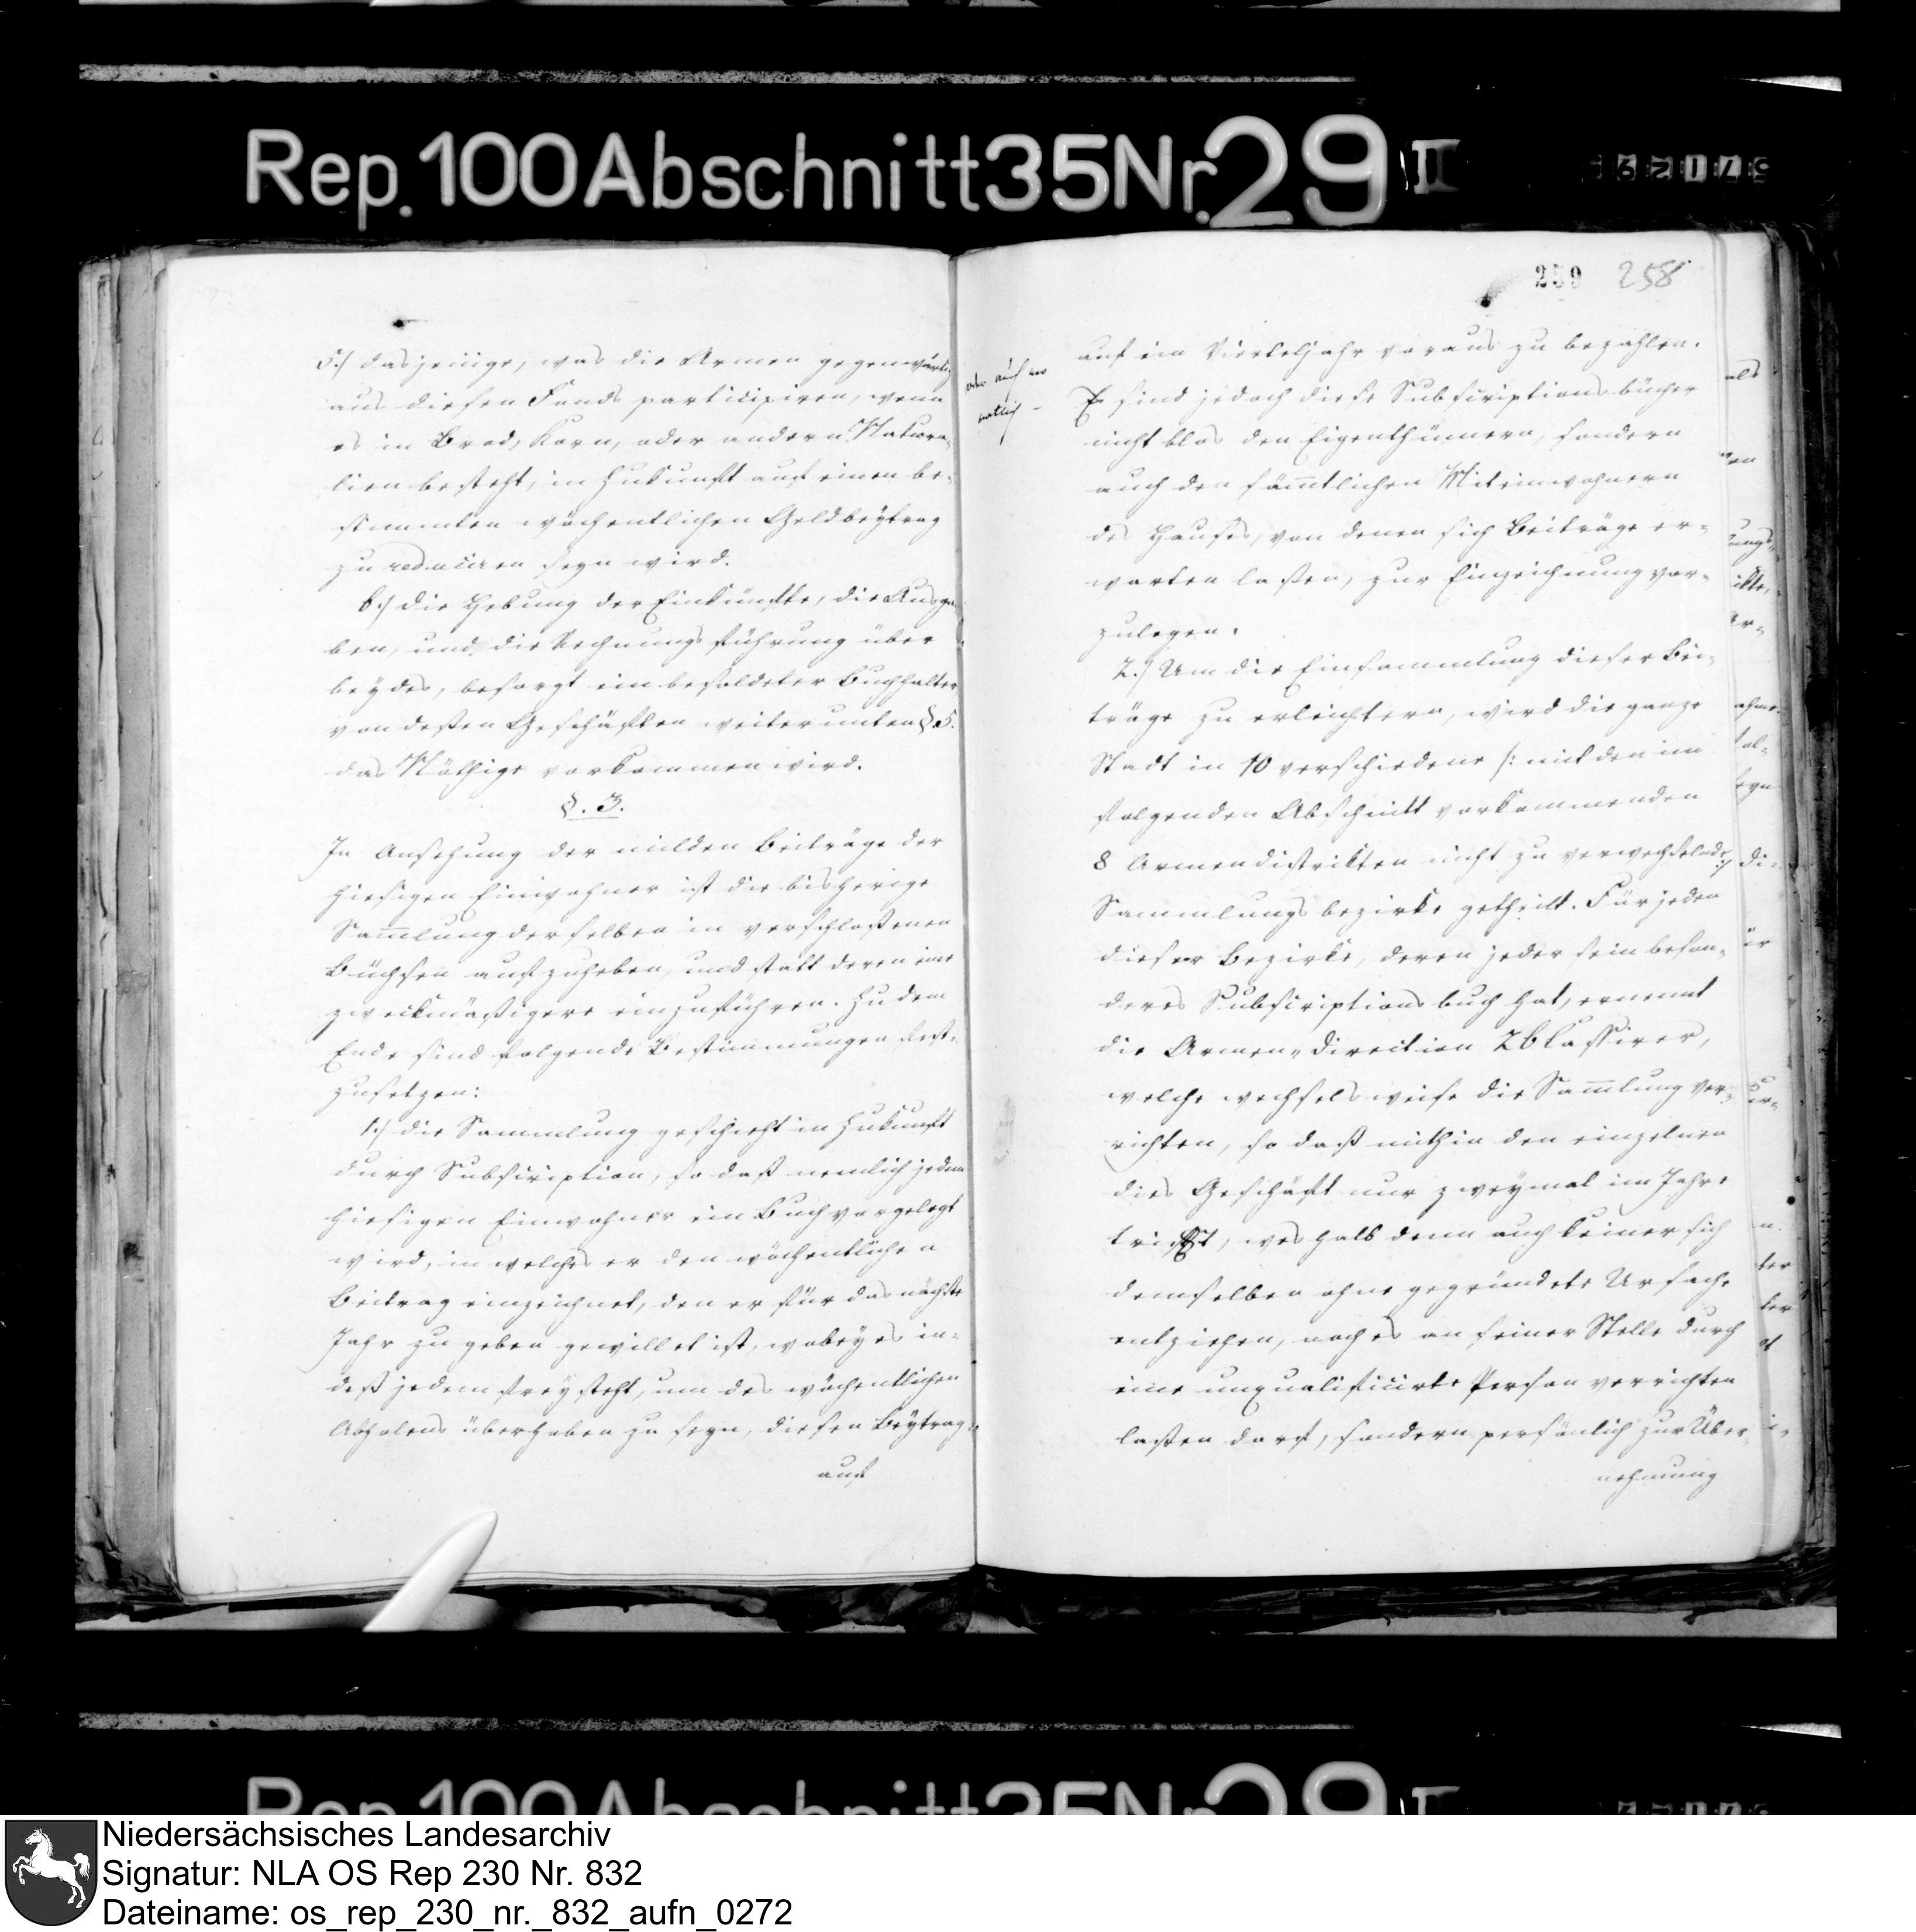 Rep. 100 Abschnitt 35 Nr. 29 II
5:/ dasjenige, was die Armen gegenwärtig
aus diesen Fonds participiren, wenn
es in Brod, Korn, oder andern Natura-
lien besteht, in Zukunft auf einen be-
stimmten wöchentlichen Geldbeytrag
zu reduciren seyn wird.
6:/ Die Hebung der Einkünfte, die Ausga-
ben, und die Rechnungsführung über
beydes, besorgt ein besoldeter Buchhalter
von deßen Geschäften weiter unten §.5.
das Nöthige vorkommen wird.
§. 3.
In Ansehung der milden Beiträge der
hiesigen Einwohner ist die bisherige
Sam̄lung derselben in verschloßenen
Büchsen aufzuheben, und statt deren eine
zweckmäßigere einzuführen. Zu dem
Ende sind folgende Bestimmungen fest-
zusetzen:
1:/ die Sammlung geschieht in Zukunft
durch Subscription, so daß nemlich jedem
hiesigen Einwohner ein Buch vorgelegt
wird, in welches er den wöchentlichen
Beitrag einzeichnet, den er für das nächste
Jahr zu geben gewillet ist, wobey es in-
deß jedem frey steht, um des wöchentlichen
Abholens überhoben zu seyn, diesen Beytrag
auf
259 258
oder auch mo
natlich -
auf ein Vierteljahr voraus zu bezahlen.
Es sind jedoch diese Subscriptionsbücher
nicht blos den Eigenthümern, sondern
auch den säm̄tlichen Miteinwohnern
des Hauses, von denen sich Beiträge er-
warten laßen, zur Einzeichnung vor-
zulegen.
2:/ Um die Einsammlung dieser Bei-
träge zu erleichtern, wird die ganze
Stadt in 10 verschiedene /: mit den im
folgenden Abschnitt vorkommenden
8 Armendistrikten nicht zu verwechselnde :/
Sammlungsbezirke getheilt. Für jeden
dieser Bezirke, deren jeder sein beson-
deres Subscriptionsbuch hat, ernennt
die Armen-Direction 26 Cassirer,
welche wechselsweise die Sam̄lung ver-
richten, so daß mithin den einzelnen
dies Geschäft nur zweymal im Jahre
trifft, weshalb denn auch keiner sich
demselben ohne gegründete Ursache
entziehen, noch es an seiner Stelle durch
eine unqualificirte Person verrichten
laßen darf, sondern persönlich zur Über-
nehmung
als
ungs-
ikte,
er-
ahme
fol-
seyn
di-
ür
ter
ter
Niedersächsisches Landesarchiv
Signatur: NLA OS Rep 230 Nr. 832
Dateiname: os_rep_230_nr._832_aufn_0272